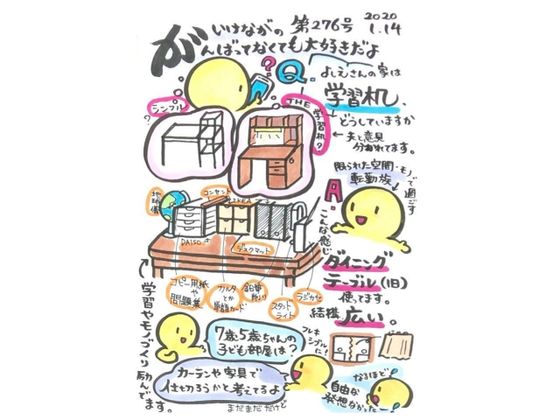 いけながの 第276号 2020 1.14
がんばってなくても大好きだよ
Q.
よしえさんの家は
学習机、
どうしていますか
←夫と意見
分かれてます。
シンプル?
THE 学習机?
限られた空間・モノで過ごす
転勤族
A.
こんな感じ
地球儀
コンセント
IKEA
DAISO
デスクマット
コピー用紙や問題集
カルタとか
単語カード
鉛筆削り
スタンドライト
ラジカセ
ダイニング
テーブル(旧)
使ってます。
結構広い。
学習やモノづくり励んでます。
7歳5歳ちゃんの
子ども部屋は?
フレキシブルに!
カーテンや家具で
仕切ろうかと考えてるよ
まだまだだけど
なるほど
自由な
発想なかった